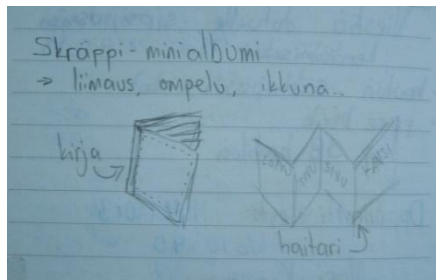 Skräppi-minialbumi
→ liimaus, ompelu, ikkuna..
kirja
haitari